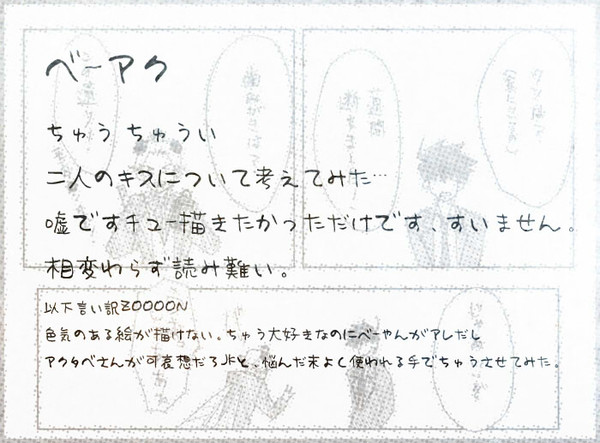 べーアク
ちゅう ちゅうい
二人のキスについて考えてみた…
嘘ですチュー描きたかっただけです、すいません。
相変わらず読み難い。
以下言い訳ZOOOON
色気のある絵が描けない。ちゅう大好きなのにべーやんがアレだし
アクタベさんが可哀想だろJKと、悩んだ末よく使われる手でちゅうさせてみた。